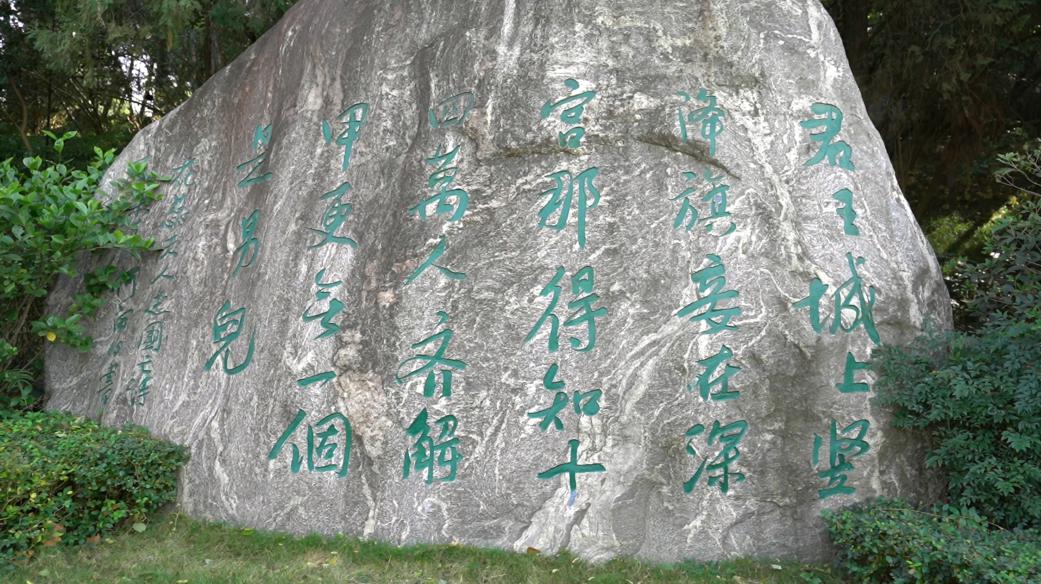 君王城上竖
降旗妾在深
宫那得知十
四萬人齐解
甲更无一個
是男兒
花蕊夫人述國亡詩